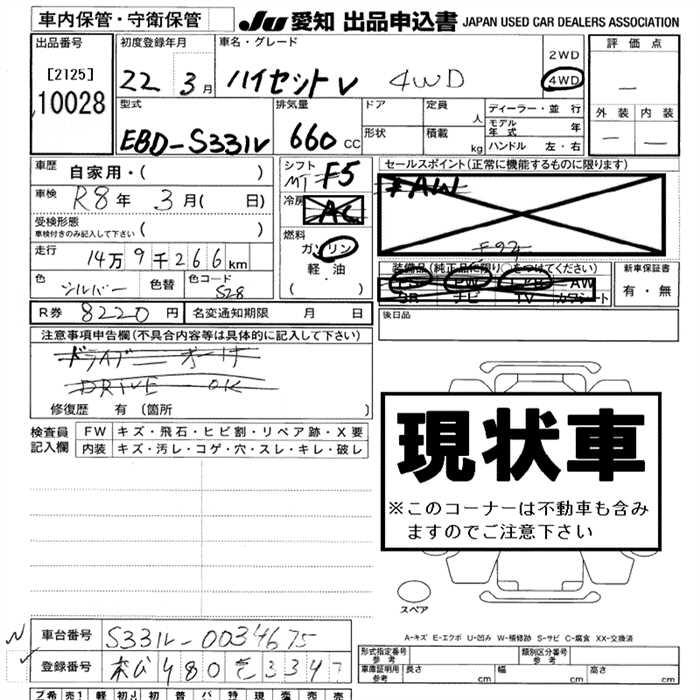 車内保管・守衛保管
JU 愛知 出品申込書 JAPAN USED CAR DEALERS ASSOCIATION
出品番号
[2125]
10028
初度登録年月
22年 3月
車名・グレード
ハイゼットV 4WD
2WD
4WD
評価点
外装 内装
型式
EBD-S331V
排気量
660cc
ドア
形状
定員 人
積載 kg
ディーラー・並行
モデル年式 年
ハンドル 左・右
車歴 自家用・( )
車検 R8年 3月( 日)
受検形態
車検付きのみ記入して下さい ( )
走行 14万9千266km
色 シルバー 色替
色コード S28
シフト MT F5
冷房 AC
燃料
ガソリン
軽油
( ・ )
セールスポイント(正常に機能するものに限ります)
AW
装備品(純正品に限り○をつけてください)
PS PW AW
SR ナビ TV カワシート
新車保証書
有・無
R券 8220円 名変通知期限 月 日
後日品
注意事項申告欄(不具合内容等は具体的に記入して下さい)
DRIVE OK
修復歴 有(箇所 )
検査員記入欄
FW キズ・飛石・ヒビ割・リペア跡・X要
内装 キズ・汚レ・コゲ・穴・スレ・キレ・破レ
現状車
※このコーナーは不動車も含みますのでご注意下さい
スペア
A-キズ E-エクボ U-凹み W-補修跡 S-サビ C-腐食 XX-交換済
車台番号 S331V-0034675
登録番号 480 3347
形式指定番号 参考
類別区分番号 参考
車庫証明用 参考 長さ cm 幅 cm 高さ cm